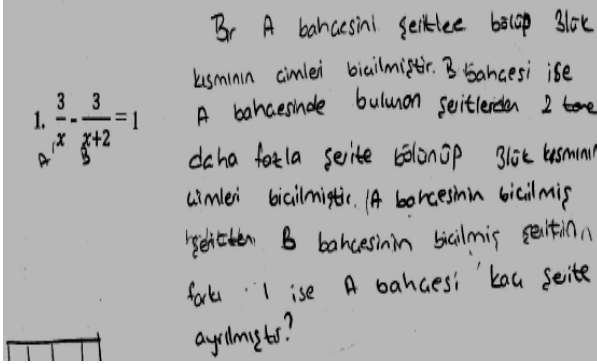 1. 3/x - 3/(x+2) = 1
A B
Bir A bahçesini şeritlere bölüp 3lük
kısmının çimleri biçilmiştir. B bahçesi ise
A bahçesinde bulunan şeritlerden 2 tane
daha fazla şerite bölünüp 3lük kısmının
çimleri biçilmiştir. A bahçesinin biçilmiş
B bahçesinin biçilmiş
farkı 1 ise A bahçesi kaç şerite
ayrılmıştır?